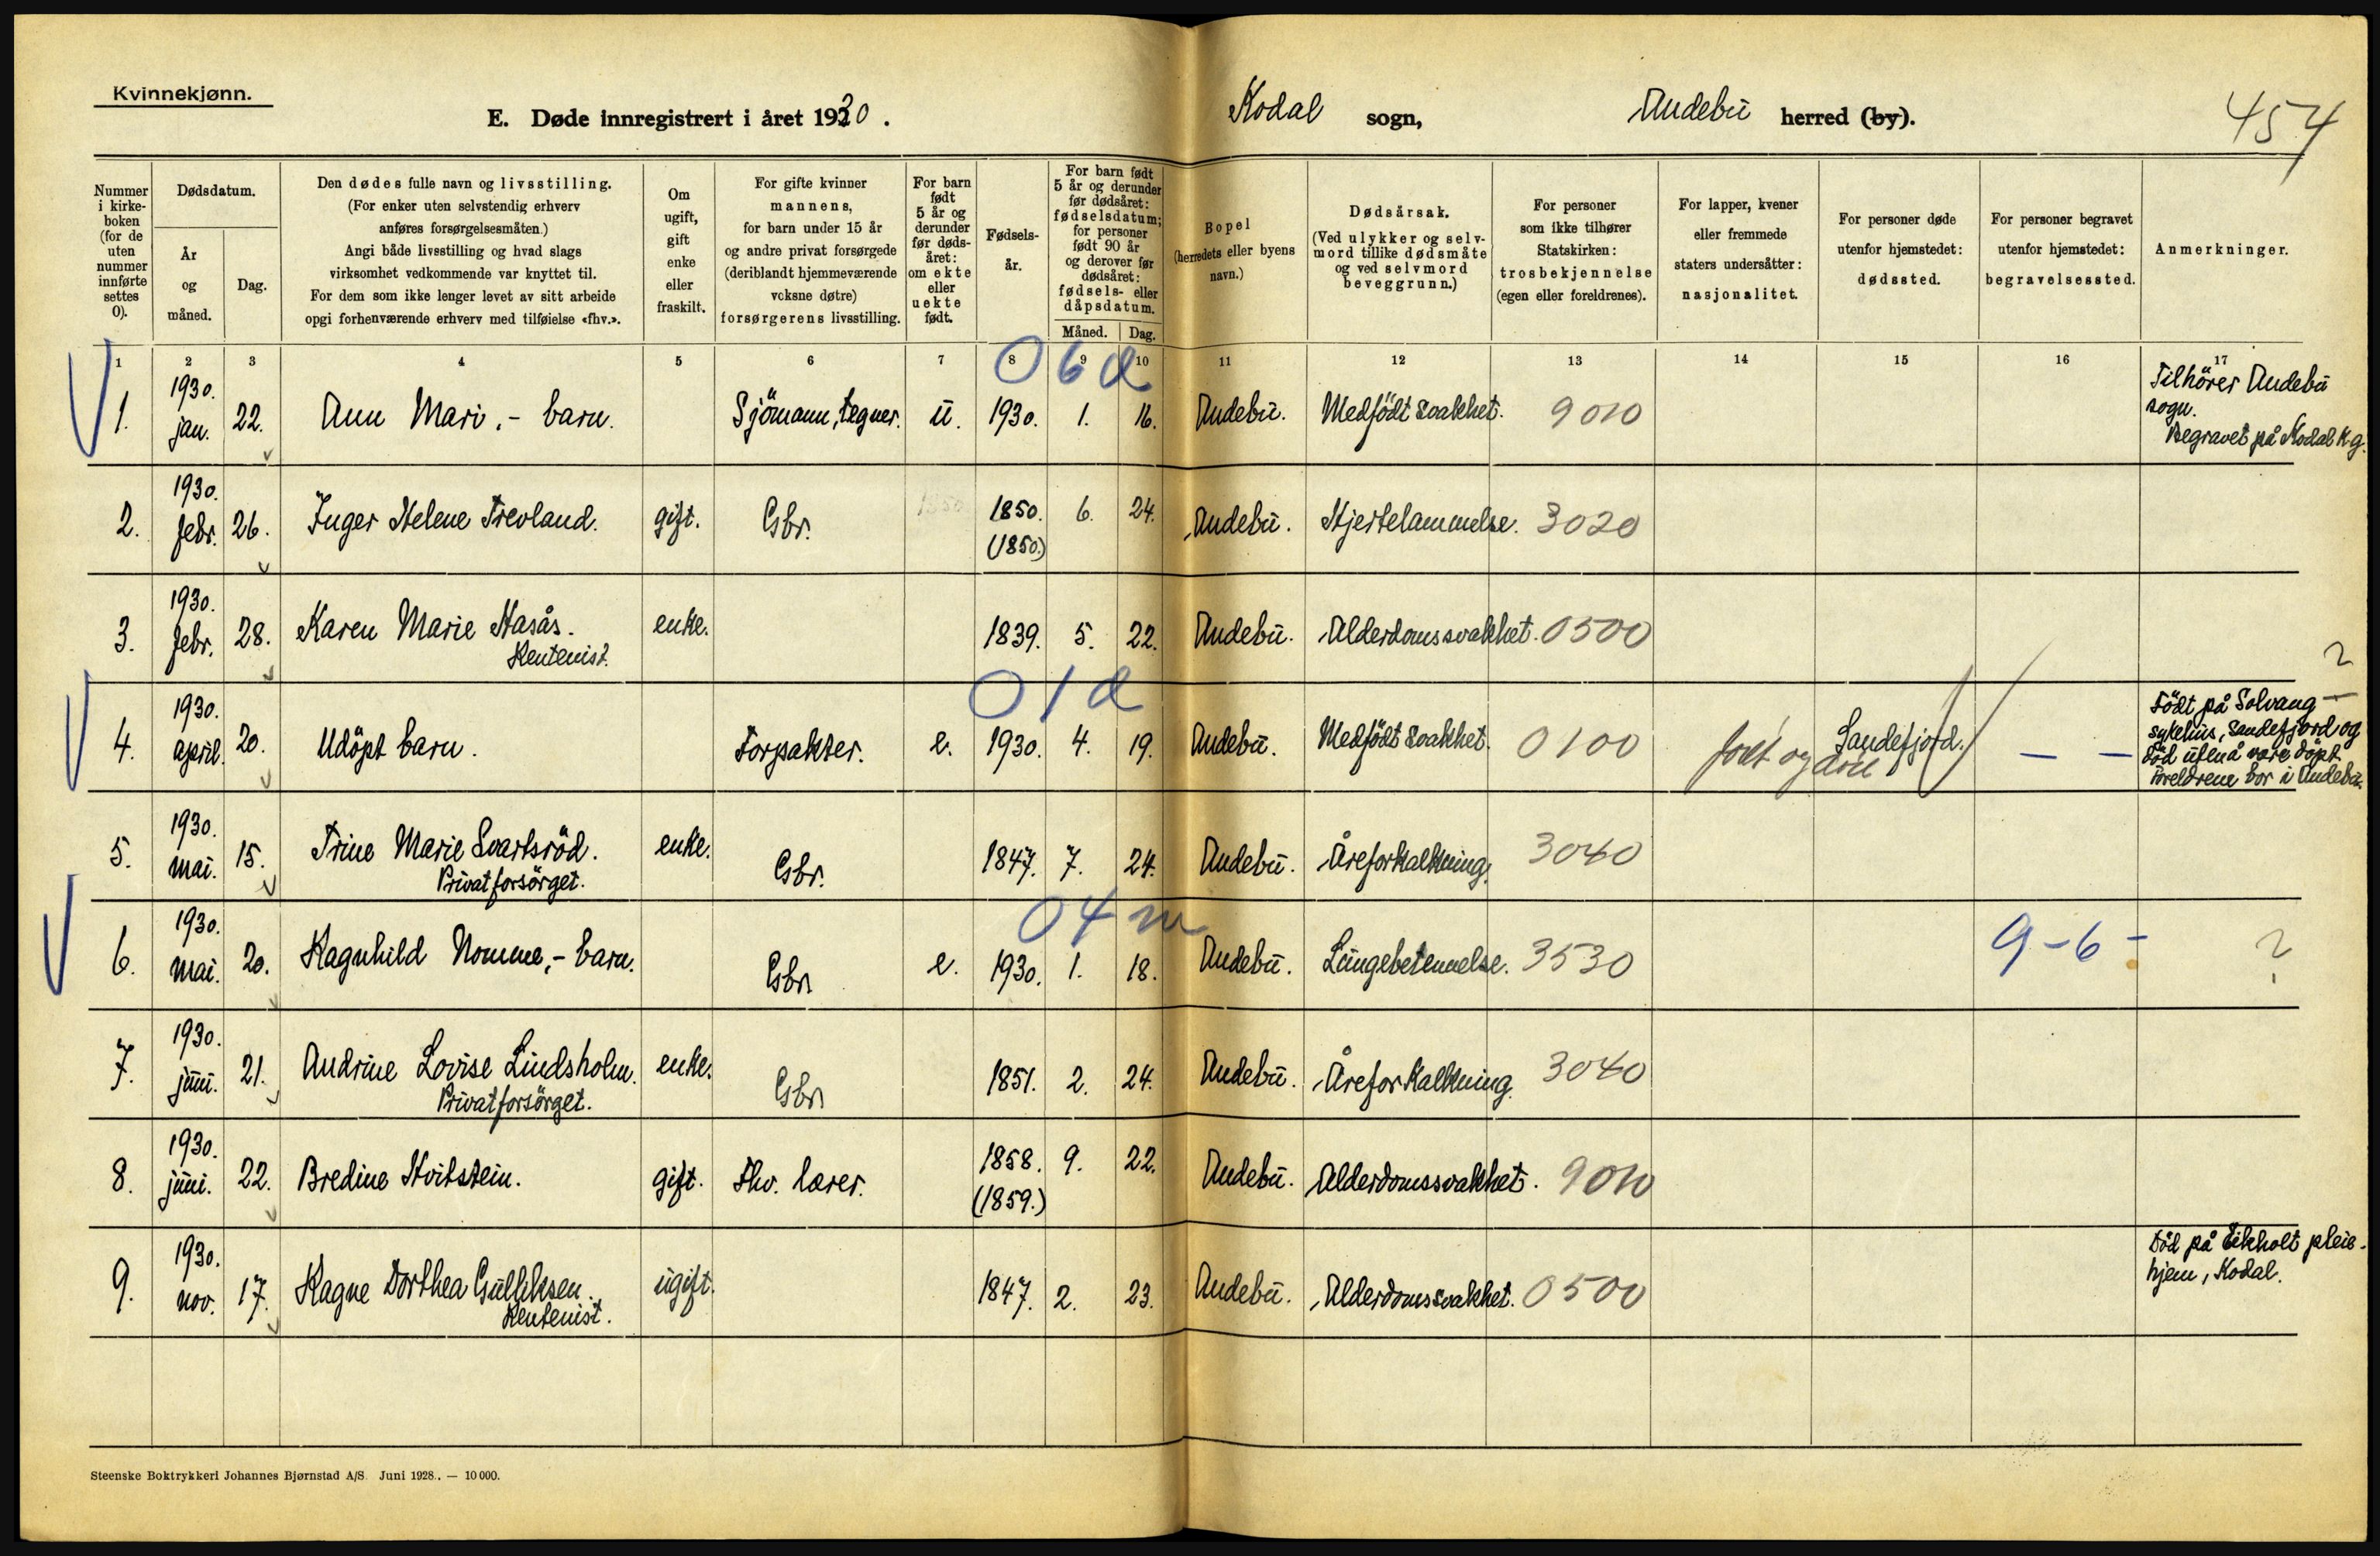 Kvinnekjønn.
E. Døde innregistrert i året 1930.
Kodal sogn, Andebu herred (by).
454
Nummer i kirkeboken (for de uten nummer innførte settes 0).
Dødsdatum.
År og måned.
Dag.
Den dødes fulle navn og livsstilling.
(For enker uten selvstendig erhverv
anføres forsørgelsesmåten.)
Angi både livsstilling og hvad slags
virksomhet vedkommende var knyttet til.
For dem som ikke lenger levet av sitt arbeide
opgi forhenværende erhverv med tilføielse «fhv.».
Om ugift, gift enke eller fraskilt.
For gifte kvinner
mannens,
for barn under 15 år
og andre privat forsørgede
(deriblandt hjemmeværende
voksne døtre)
forsørgerens livsstilling.
For barn født 5 år og derunder før dødsåret: om ekte eller uekte født.
Fødselsår.
For barn født
5 år og derunder
før dødsåret:
fødselsdatum;
for personer
født 90 år
og derover før
dødsåret:
fødsels- eller
dåpsdatum.
Måned. Dag.
Bopel
(herredets eller byens
navn.)
Dødsårsak.
(Ved ulykker og selvmord tillike dødsmåte
og ved selvmord
beveggrunn.)
For personer
som ikke tilhører
Statskirken:
trosbekjennelse
(egen eller foreldrenes).
For lapper, kvener
eller fremmede
staters undersåtter:
nasjonalitet.
For personer døde
utenfor hjemstedet:
dødssted.
For personer begravet
utenfor hjemstedet:
begravelsessted.
Anmerkninger.
1 2 3 4 5 6 7 8 9 10 11 12 13 14 15 16 17
06d
1. 1930. jan. 22. Ann Mari, - barn. Sjömann, tegner. ü. 1930. 1. 16. Andebü. Medfödt svakhet. 9010
Tilhörer Andebü
sogn.
Begravet på Kodal kg.
2. 1930. febr. 26. Inger Helene Trevland. gift. Gbr. 1850 1850. (1850.) 6. 24. Andebü. Hjertelammelse. 3020
3. 1930. febr. 28. Karen Marie Hasås. enke. 1839. 5. 22. Andebü. Alderdomssvakhet. 0500
Rentenist.
?
01d
4. 1930. april. 20. Udöpt barn. Forpakter. e. 1930. 4. 19. Andebü. Medfödt svakhet. 0100 født og død Sandefjord. — —
Födt på Solvang
sykehüs, Sandefjord og
död üten å være döpt.
Foreldrene bor i Andebü.
5. 1930. mai. 15. Trine Marie Svartsröd. enke. Gbr. 1847. 7. 24. Andebü. Åreforkalkning. 3040
Privat forsörget.
04m
6. 1930. mai. 20. Ragnhild Nomme, - barn. Gbr. e. 1930. 1. 18. Andebü. Lüngebetennelse. 3530 9-6- ?
7. 1930. jüni. 21. Andrine Lovise Lindsholm. enke. Gbr. 1851. 2. 24. Andebü. Åreforkalkning. 3040
Privat forsörget.
8. 1930. jüni. 22. Bredine Hvitstein. gift. Fhv. lærer. 1858. (1859.) 9. 22. Andebü. Alderdomssvakhet. 9010
9. 1930. nov. 17. Ragne Dorthea Gülliksen. ügift. 1847. 2. 23. Andebü. Alderdomssvakhet. 0500
Rentenist.
Död på Eikholt pleie-
hjem, Kodal.
Steenske Boktrykkeri Johannes Bjørnstad A/S. Juni 1928. — 10 000.